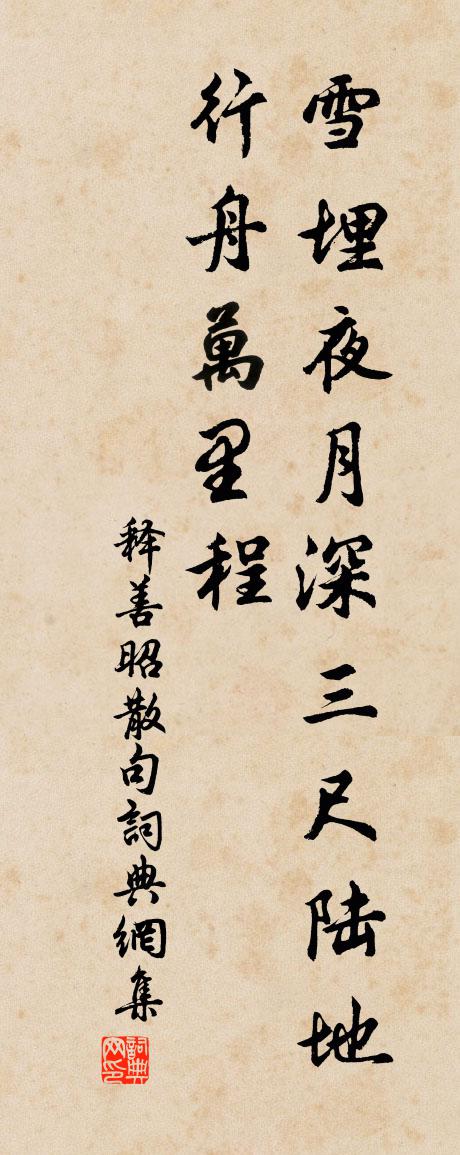 雪埋夜月深三尺陆地
行舟萬里程
释善昭散句詞典網集
詞典网印